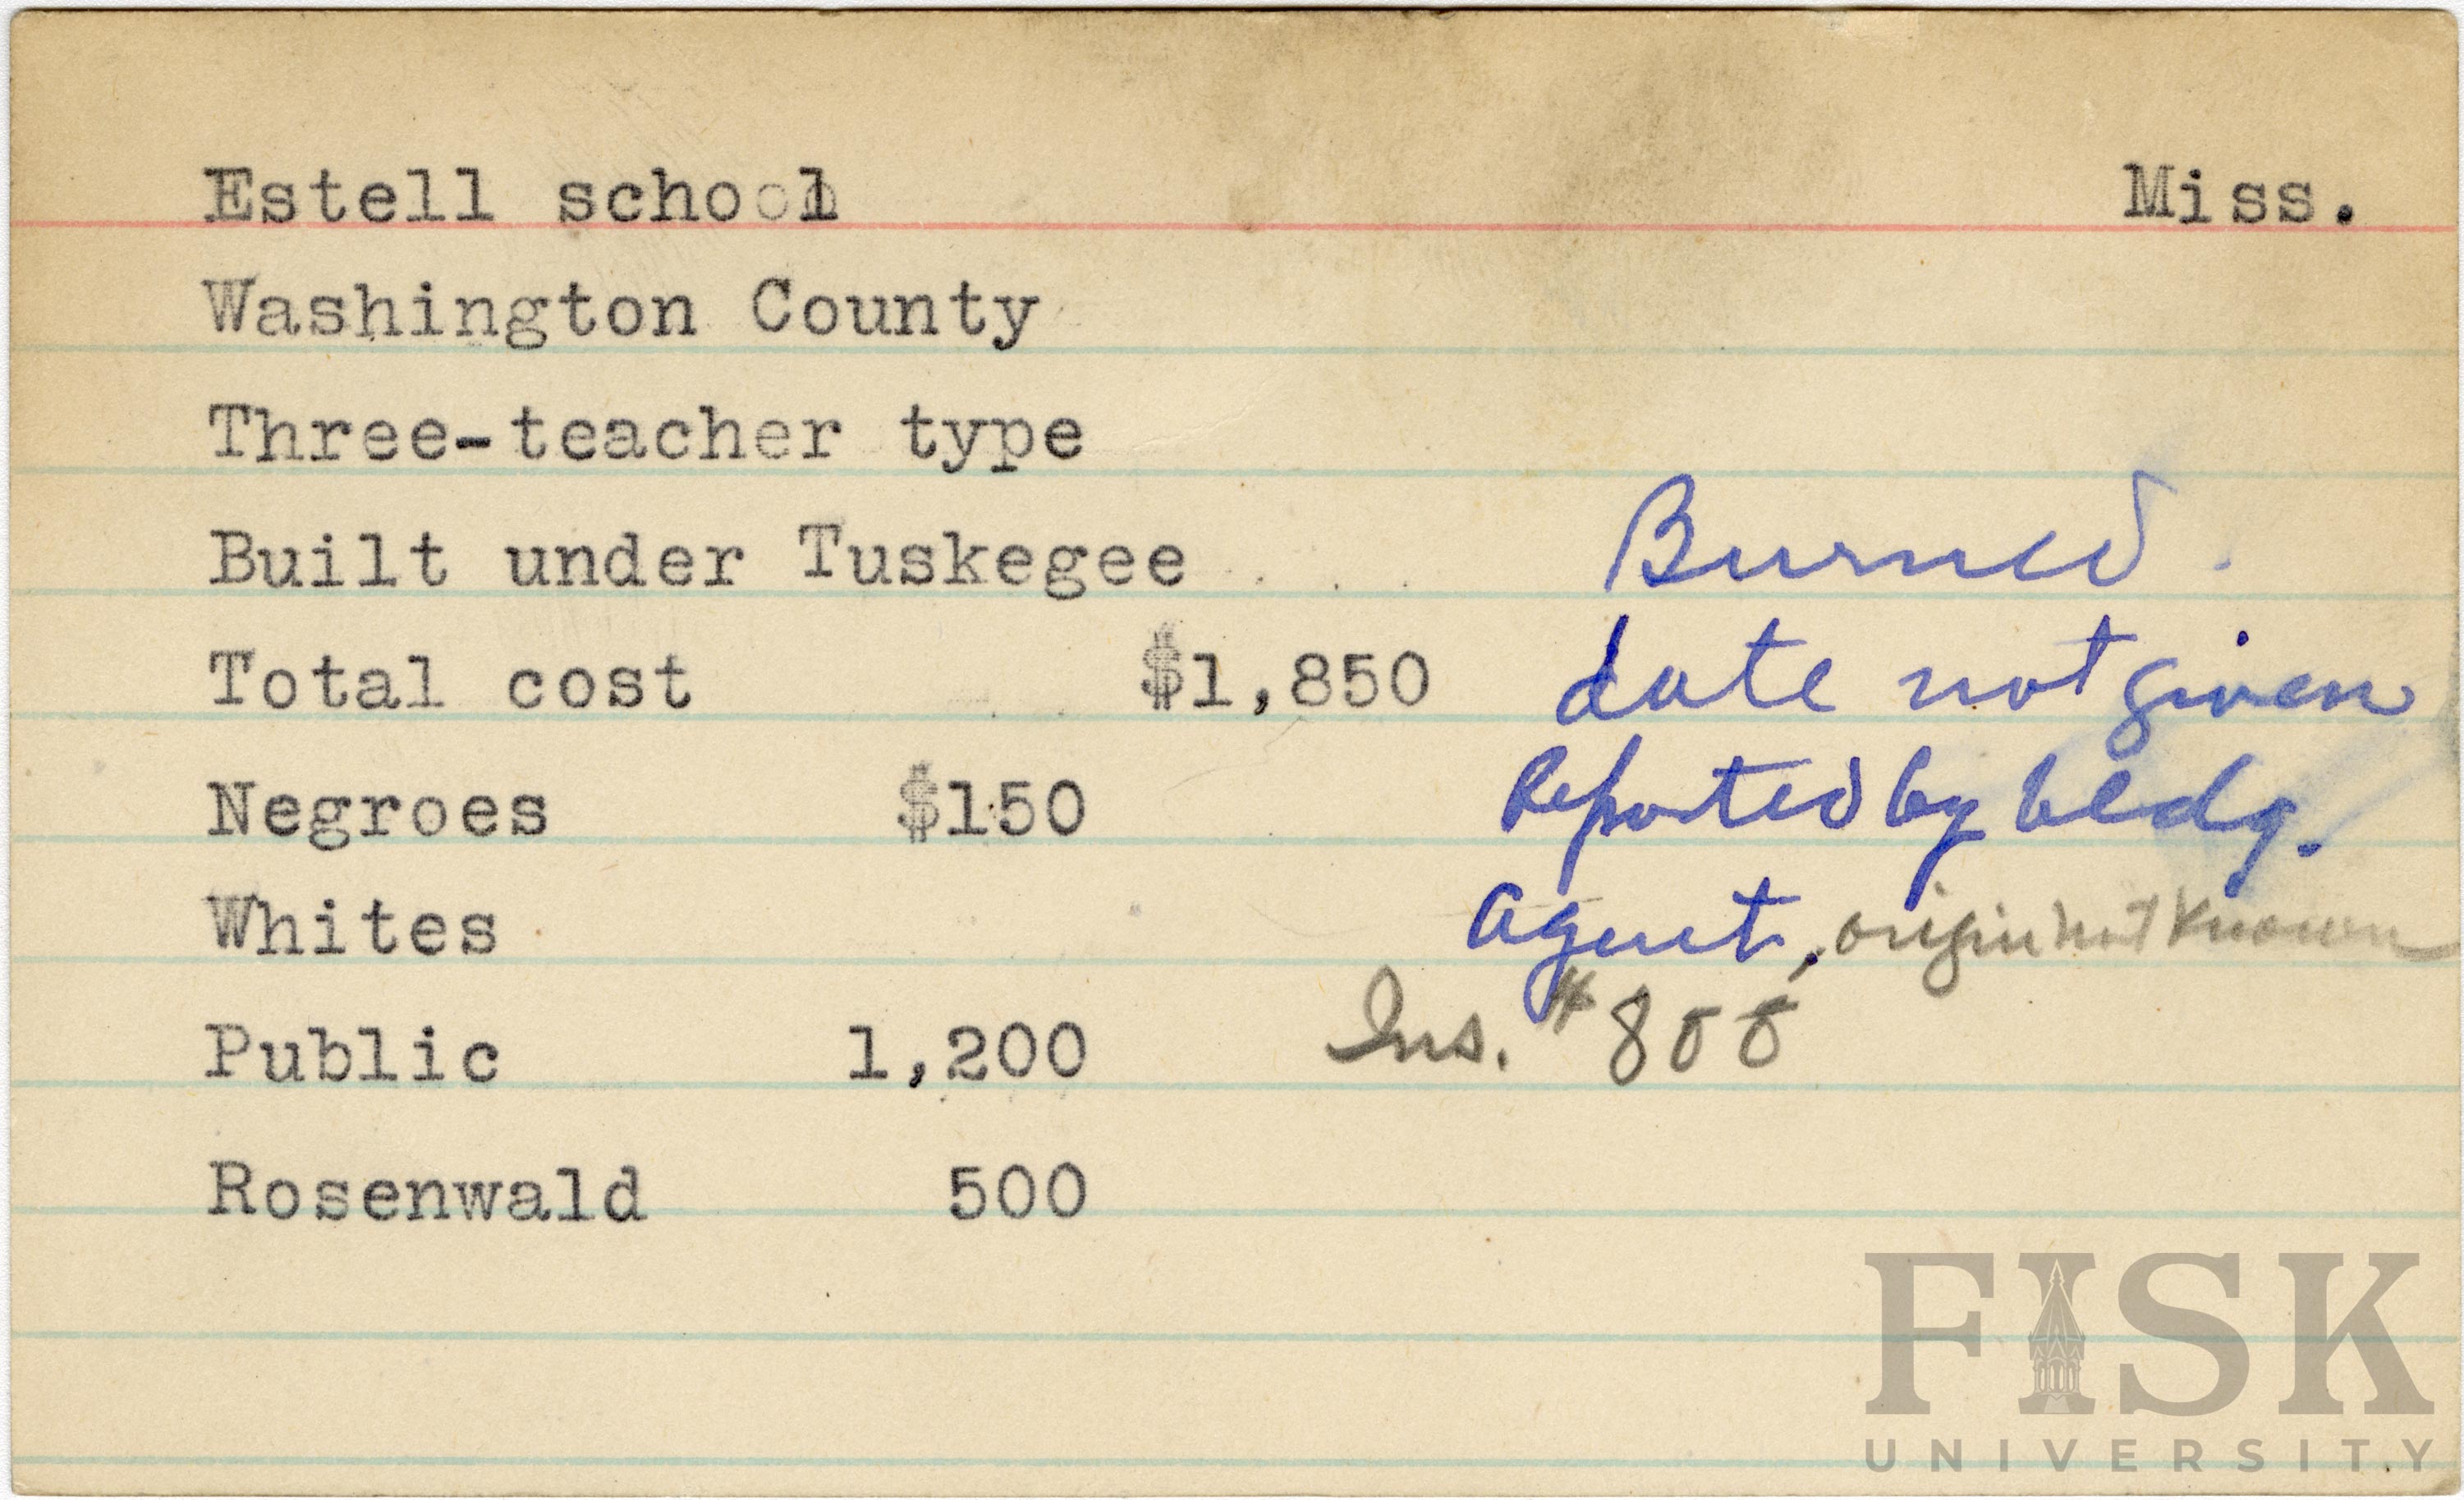 Estell school Miss.
Washington County
Three-teacher type
Built under Tuskegee
Burned.
Total cost $1,850
date not given
Negroes $150
Reported by bldg.
Whites
agent, origin not known
Public 1,200
Ins. # 800
Rosenwald 500
FISK
UNIVERSITY